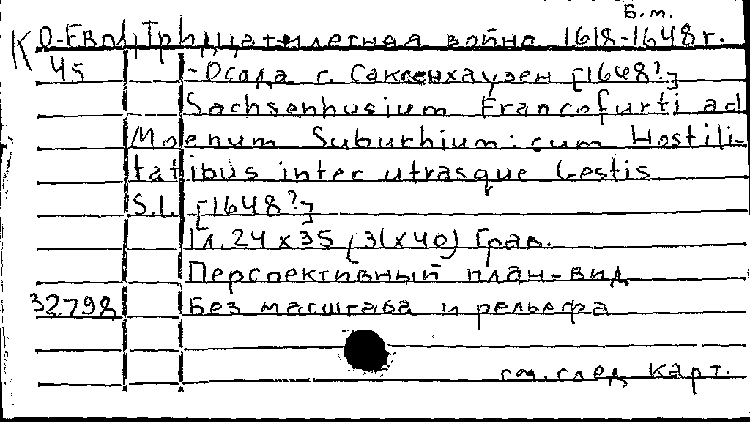 Б.м.
К О-Евр Тридцатилетняя война 1618-1648 г.
45 - Осада г. Саксенхаузен [1648?]
Sachsenhusium Francofurti ad
Moenum Suburbium: cum Hostili-
tatibus inter utrasque Gestis
S.l. [1648?]
1 л. 24 x 35 (31 x 40) Грав.
Перспективный план-вид
32798 Без масштаба и рельефа
см. след карт.